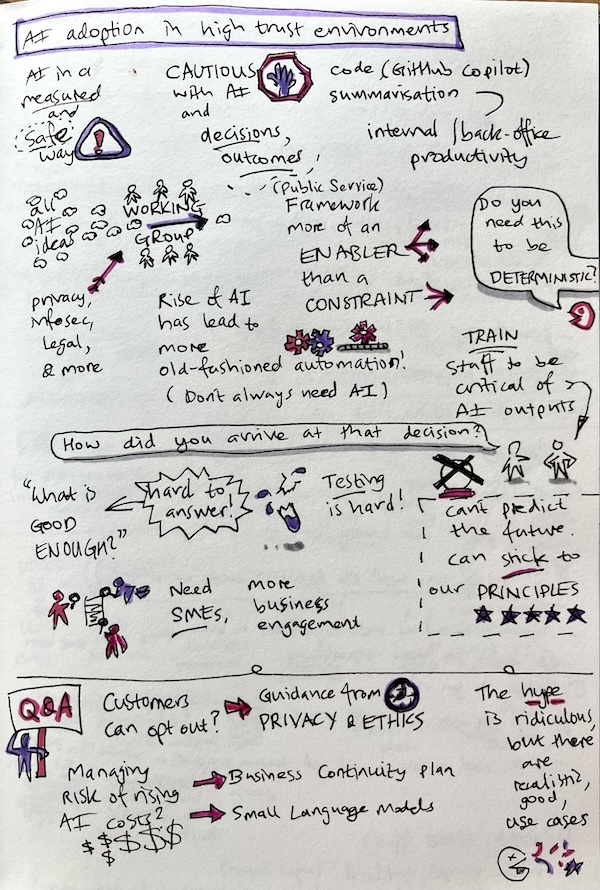 AI adoption in high trust environments
AI in a
measured
and
safe
way
!
CAUTIOUS
with AI
and
decisions,
outcomes,
code (GitHub Copilot)
summarisation
internal / back-office
productivity
all
AI
ideas
WORKING
GROUP
privacy,
infosec,
legal,
& more
(Public Service)
Framework
more of an
ENABLER
than a
CONSTRAINT
Do you
need this
to be
DETERMINISTIC?
Rise of AI
has lead to
more
old-fashioned automation!
(Don't always need AI)
TRAIN
staff to be
critical of
AI outputs
How did you arrive at that decision?
"What is
GOOD
ENOUGH?"
hard to
answer!
Testing
is hard!
can't predict
the future.
can stick to
our PRINCIPLES
Need
SMEs,
more
business
engagement
Q&A
Customers
can opt out?
Guidance from
PRIVACY & ETHICS
Managing
Risk of rising
AI costs?
$ $ $ $ $
$
Business Continuity plan
Small Language Models
The hype
is ridiculous,
but there
are
realistic,
good,
use cases